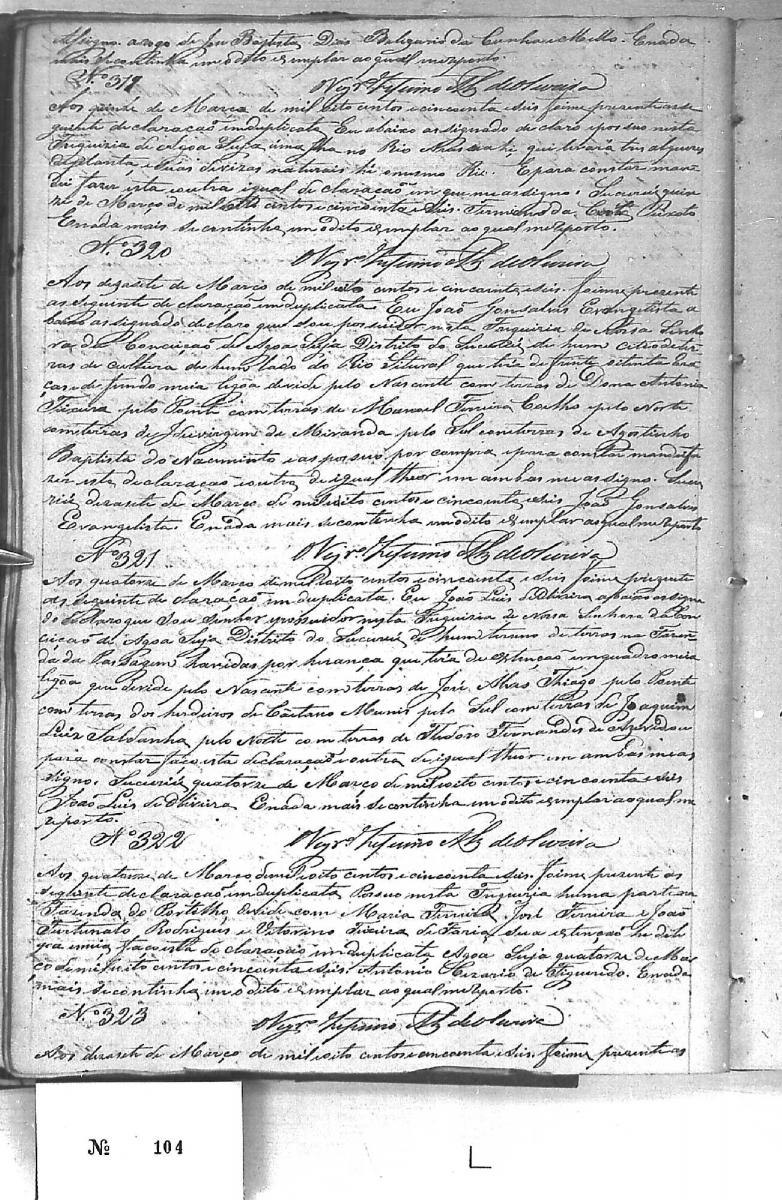 Assigno arogo de José Baptista Dias Beligario da Cunha e Mello. Enada
mais se continha in o dito exemplar ao qual me reporto.
Nº 319 O Vigrº Zeferino Alz de Oliveira
Aos quinze de Março de mil oito centos e cincoenta e seis foime presente ase
guinte declaração in duplicata Eu abaixo assignado declaro que posuo nesta
Friguizia de Agoa Suja uma Ilha no Rio que levará tres alqueres
de planta, e suas devizas naturais hé o mesmo Rio. E para constar man
dei fazer esta e outra igual declaração in que me assigno. Sucuriú quin
ze de Março de mil oito centos e cincoenta e seis. da Costa Peixoto
Enada mais se continha in o dito exemplar ao qual me reporto.
Nº 320 O Vigrº Zeferino Alz de Oliveira
Aos dezasete de Março de mil oito centos e cincoenta e seis foime presente
as seguinte declaração in duplicata Eu João Gonsalvis Evangelista a
baixo assignado declaro que sou posuidor nesta Friguizia de Nossa Senho
ra da Conceição de Agoa Suja Distrito do Sucuriú de hum citio de ter
ras de cultura de hum lado do Rio Seturval que terá de frente setenta bra
ças e de fundo meia legoa devide pelo Nascente com terras de Dona Antonia
Teixeira pelo Poente com terras de Manoel Ferreira Coelho e pelo Norte
com terras de de Miranda pelo Sul com terras de Agostinho
Baptista do Nacimento e as posuo por compra e para constar mandei fa
zer esta declaração e outra de igual theor in ambas me assigno. Sucu
riú dezasete de Março de mil oito centos e cincoenta e seis João Gonsalvis
Evangelista. Enada mais se continha in o dito exemplar ao qual me reporto
Nº 321 O Vigrº Zeferino Alz de Oliveira
Aos quatorze de Março de mil oito centos e cincoenta e seis foime prezente
as seguinte declaração in duplicata. Eu João Luis d'Oliveira abaixo assigna
do declaro que sou Senhor e posuidor nesta Friguizia de Nossa Senhora da Con
ceição de Agoa Suja Distrito do Sucuriú de hum terreno de terras na Fazen
da da Passagem havidas por herança que terá de extenção em quadro meia
legoa que devide pelo Nascente com terras de José Alves Thiago pelo Poente
com terras dos herdeiros de Caetano Muniz pelo Sul com terras de Joaquim
Luiz Saldanha pelo Norte com terras de Theodoro Fernandes de Azevedo e
para constar faço esta declaração e outra de igual theor in ambas me as
signo. Sucuriú quatorze de Março de mil oito centos e cincoenta e seis
João Luis de Oliveira Enada mais se continha in o dito exemplar ao qual me
reporto.
Nº 322 O Vigrº Zeferino Alz de Oliveira
Aos quatorze de Março de mil oito centos e cincoenta e seis. foime prezente as
seguinte declaração in duplicata Posuo nesta Friguezia huma parte na
Fazenda do Portilho, devide com Maria Ferreira José Ferreira e João
Fortunato Rodrigues e Vitorino Teixeira de Faria, sua extenção hé de le
goa e meia, faço esta declaração in duplicata Agoa Suja quatorze de Mar
ço de mil oito centos e cincoenta e seis. Antonio Cezario de Figueredo. Enada
mais se continha in o dito exemplar ao qual me reporto.
Nº 323 O Vigrº Zeferino Alz de Oliveira
Aos dezasete de Março de mil oito centos e cincoenta e seis foime prezente as
Nº 104